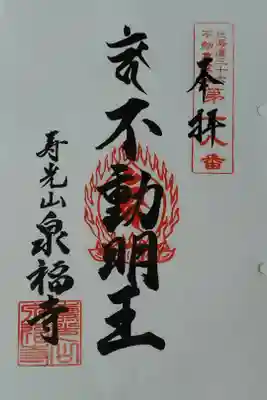 奉拝
不動明王
寿光山泉福寺